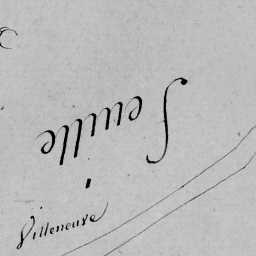 Seuille
Villeneuve